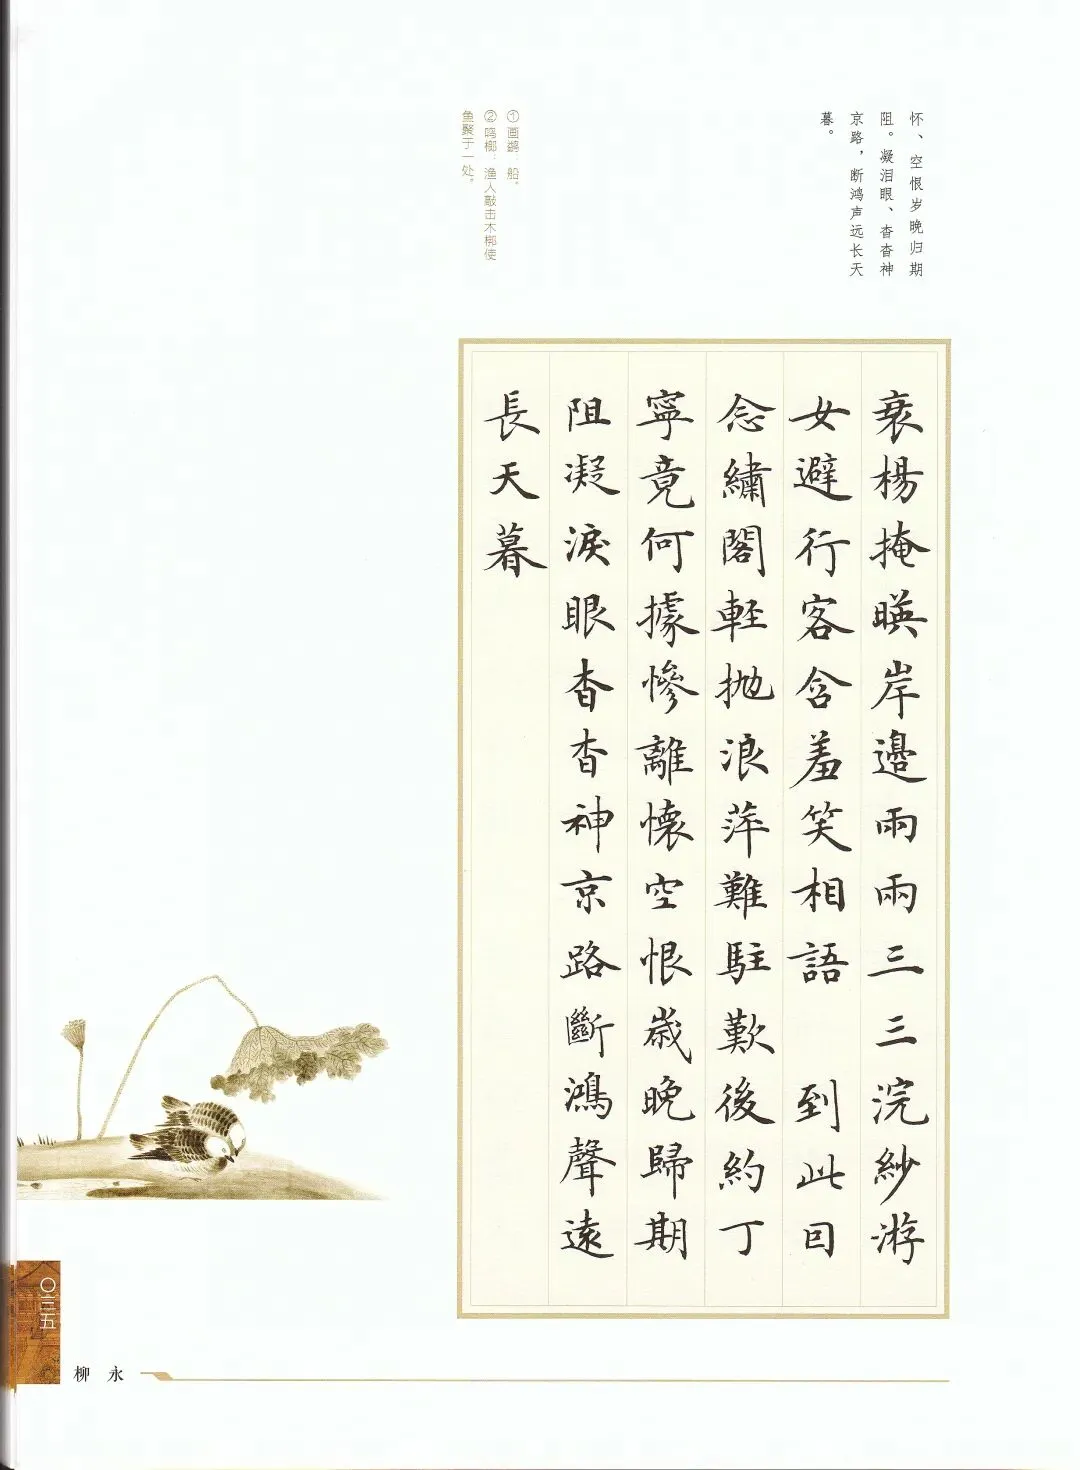 怀、空恨岁晚归期
阻。凝泪眼、杳杳神
京路，断鸿声远长天
暮。
①画鹢：船。
②鸣榔：渔人敲击木榔使
鱼聚于一处。
衰楊掩暎岸邊兩兩三三浣紗游
女避行客含羞笑相語 到此囙
念繡閣輕抛浪萍難駐歎後約丁
寧竟何據慘離懷空恨歲晚歸期
阻凝淚眼杳杳神京路斷鴻聲遠
長天暮
〇三五
柳永